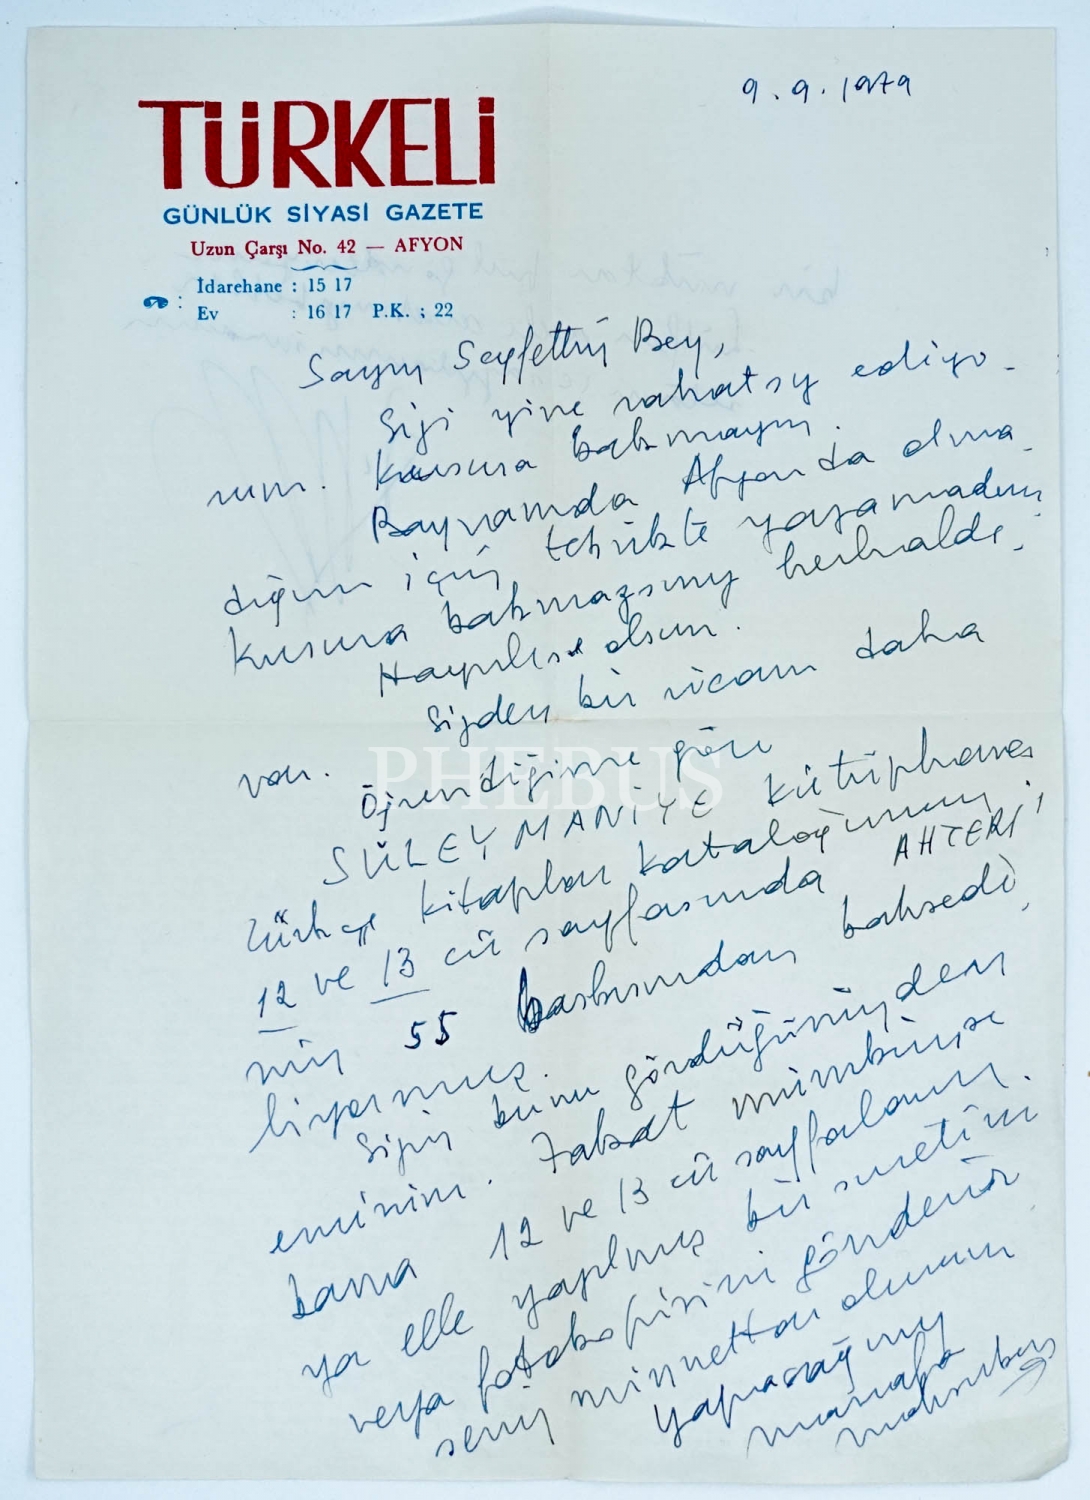 9.9.1979
TÜRKELİ
GÜNLÜK SİYASİ GAZETE
Uzun Çarşı No. 42 — AFYON
İdarehane : 15 17
Ev : 16 17 P.K. ; 22
Sayın Seyfettin Bey,
Sizi yine rahatsız ediyo-
rum. Kusura bakmayın.
Bayramda Afyonda olma-
dığım için tebrikte yazamadım
kusura bakmazsınız herhalde.
Hayırlısı olsun.
Sizden bir ricam daha
var.
Öğrendiğime göre
SÜLEYMANİYE kütüphanes
Türkçe kitaplar kataloğunun
12 ve 13 cü sayfasında AHTERİ'
nin 55 baskısından bahsedi-
liyormuş.
Sizin bunu gördüğünüzden
eminim. Fakat mümkünse
bana 12 ve 13 cü sayfaların
ya elle yapılmış bir suretini
veya fotokopisini gönderir
seniz minnettar olurum
yapacağınız
masrafa
mahsuben
PHEBUS